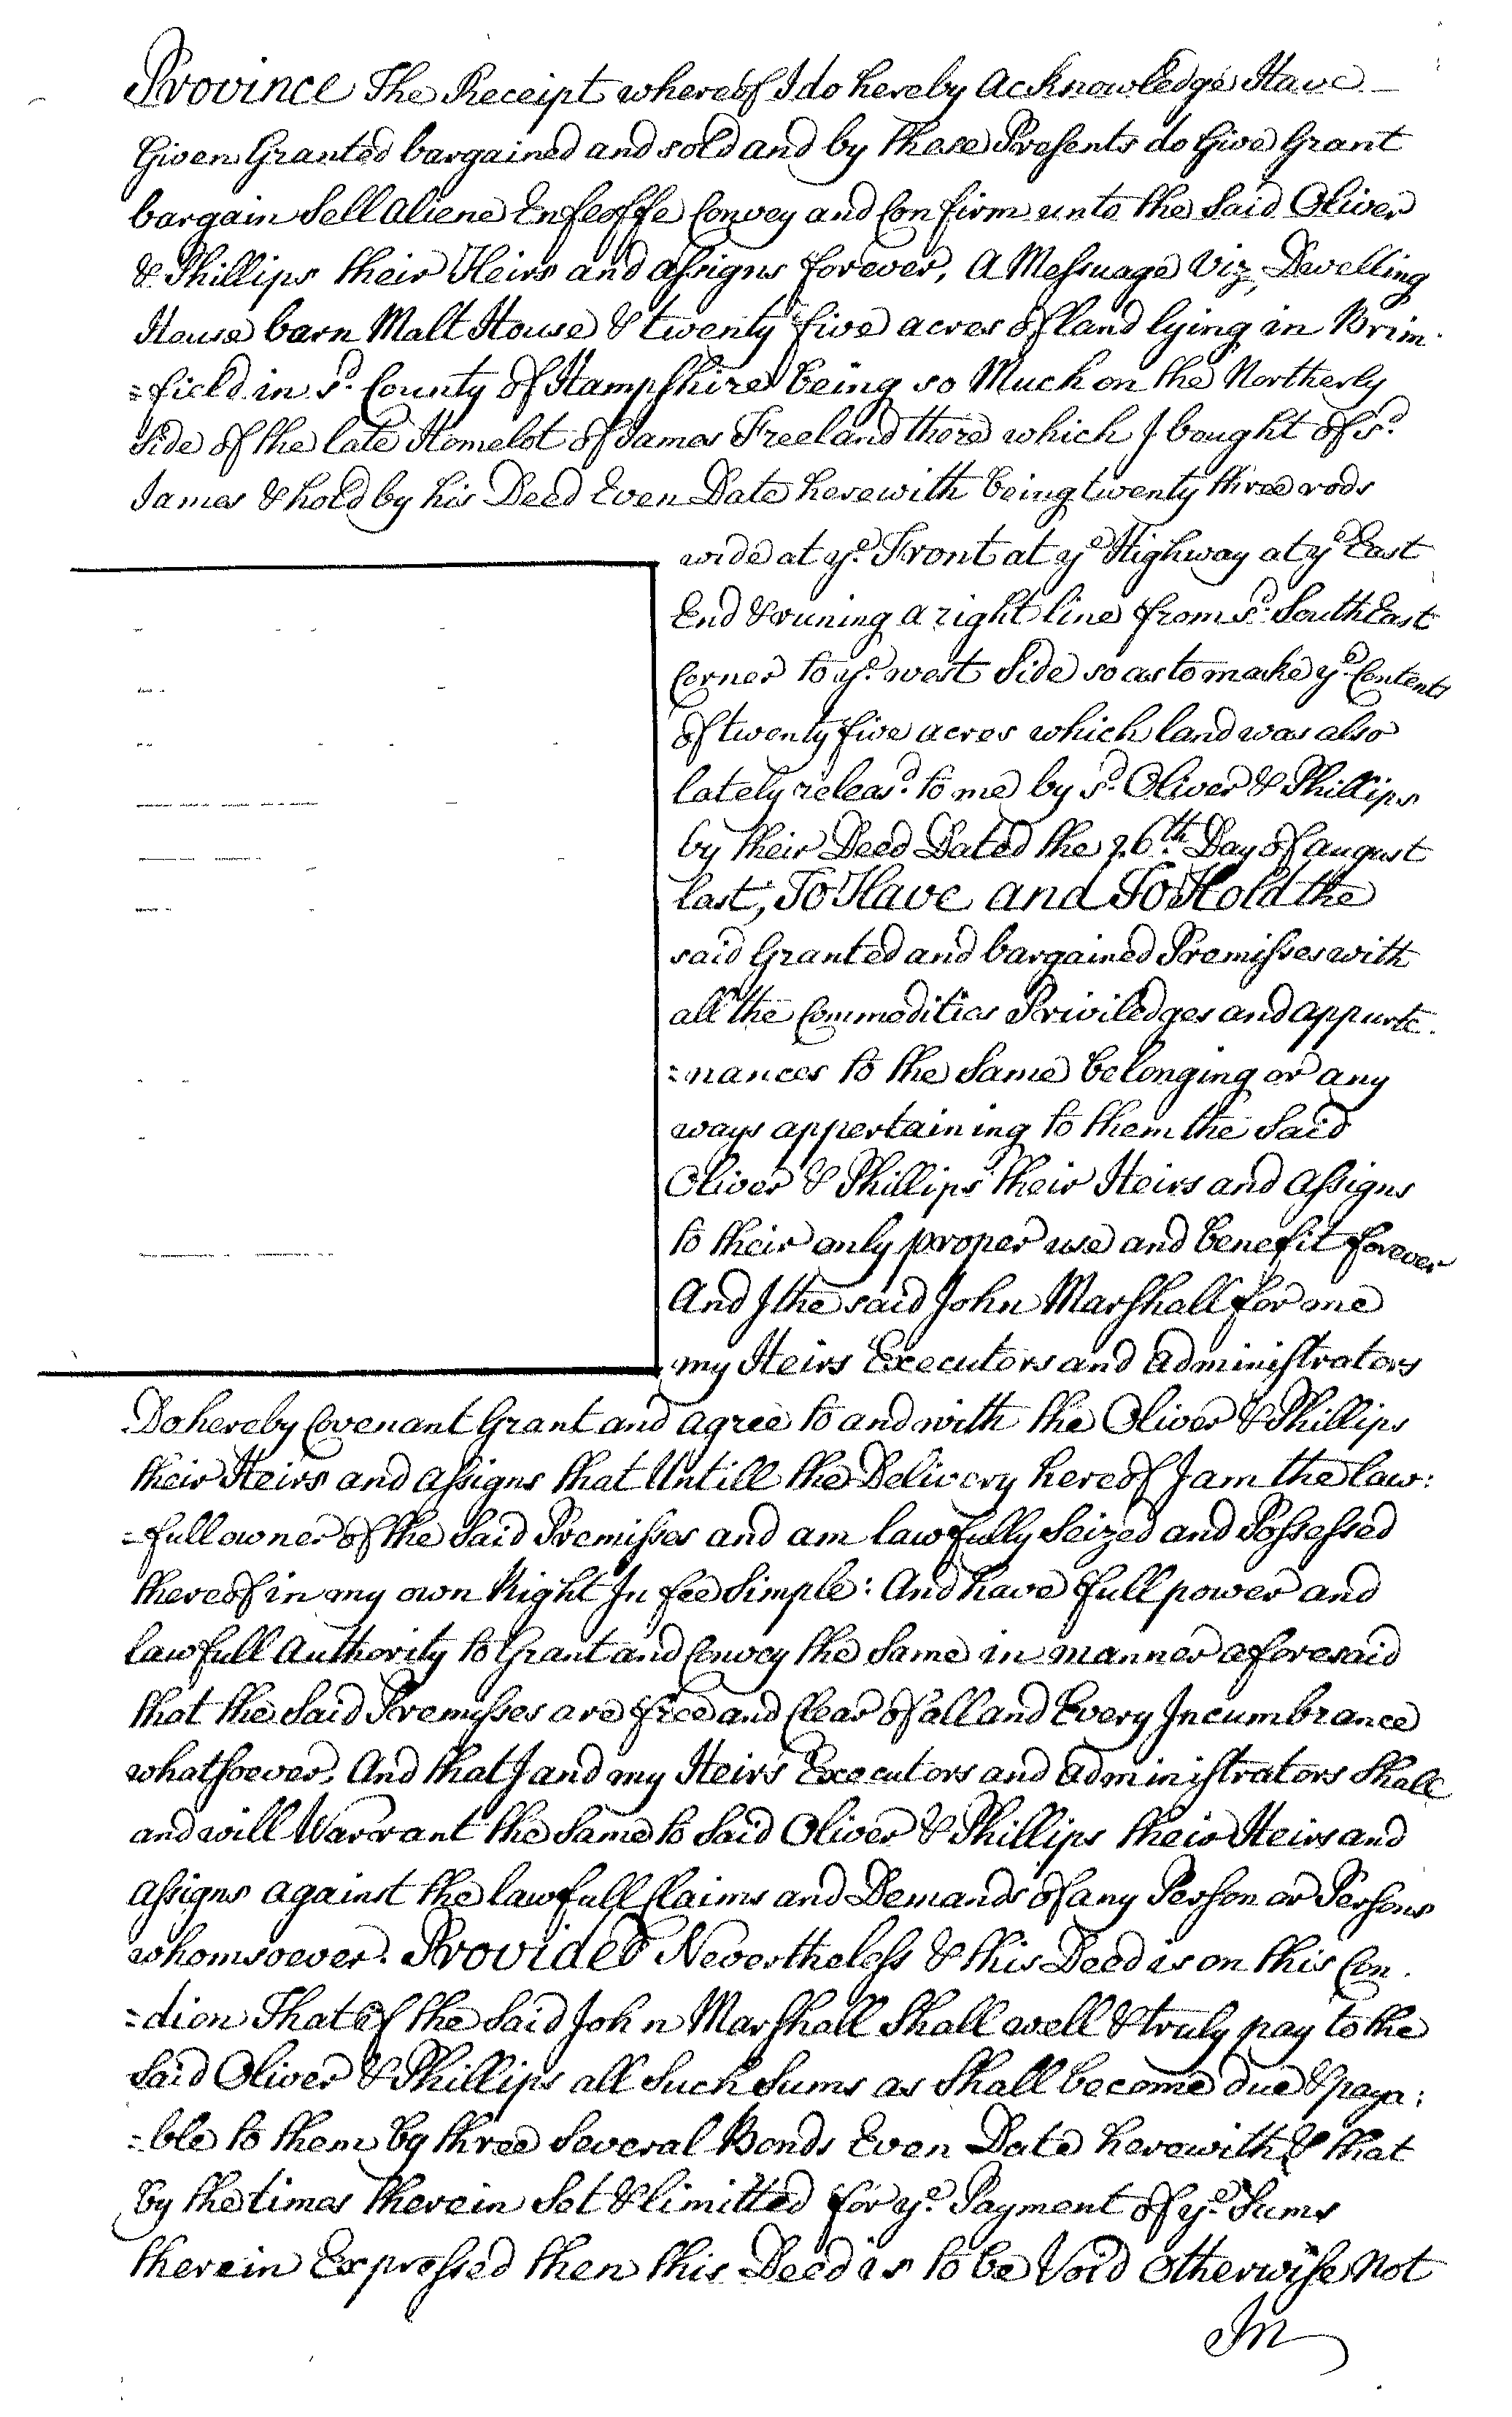 Province The Receipt whereof I do hereby Acknowledge Have
Given Granted bargained and sold and by these Presents do Give Grant
bargain Sell aliene Enfeoffe Convey and Confirm unto the said Oliver
& Phillips their Heirs and assigns forever, A Messuage Viz. Dwelling
House barn Malt House & twenty five acres of land lying in Brim-
=field in sd. County of Hampshire being so Much on the Northerly
side of the late Homelot of James Freeland there which I bought of sd.
James & hold by his Deed Even Date herewith being twenty three rods
wide at ye. Front at ye Highway at ye East
End & runing a right line from sd. South East
Corner to ye. west Side so as to make ye. Contents
of twenty five acres which land was also
lately releasd. to me by sd. Oliver & Phillips
by their Deed Dated the 26th. Day of august
last, To Have and To Hold the
said Granted and bargained Premisses with
all the Commodities Priviledges and appurte-
=nances to the Same belonging or any
ways appertaining to them the Said
Oliver & Phillips their Heirs and Assigns
to their only proper use and benefit forever
And I the said John Marshall for me
my Heirs Executors and administrators
Do hereby Covenant Grant and agree to and with the Oliver & Phillips
their Heirs and assigns that Untill the Delivery hereof I am the law:
=full owner of the Said Premisses and am lawfully Seized and Possessed
thereof in my own Right In fee Simple: And have full power and
lawfull Authority to Grant and Convey the Same in manner aforesaid
that the Said Premisses are free and Clear of all and Every Incumbrance
whatsoever. And that I and my Heirs Executors and administrators Shall
and will Warrant the Same to Said Oliver & Phillips their Heirs and
assigns against the lawfull Claims and Demands of any Person or Persons
whomsoever. Provided Nevertheless & this Deed is on this Con-
=dion That if the Said John Marshall Shall well & truly pay to the
Said Oliver & Phillips all Such Sums as Shall become due & paya:
=ble to them by three Several Bonds Even Date herewith & that
by the times therein Set & limitted for ye. Payment of ye. Sums
therein Expressed then this Deed is to be Void Otherwise Not
In